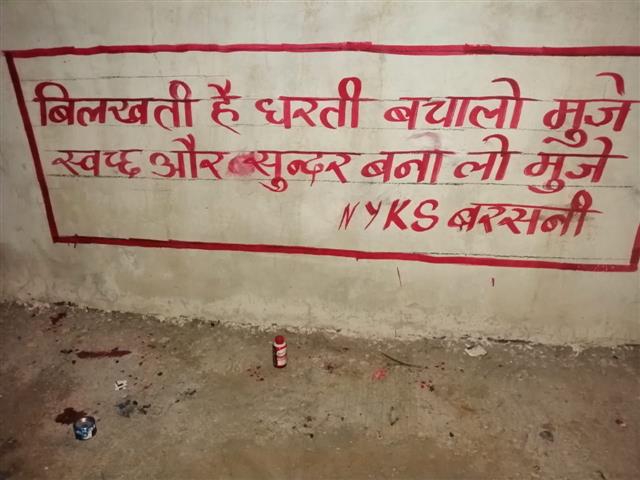 बिलखती है धरती बचालो मुजे
स्वच्छ और सुन्दर बना लो मुजे
NYKS बरसनी